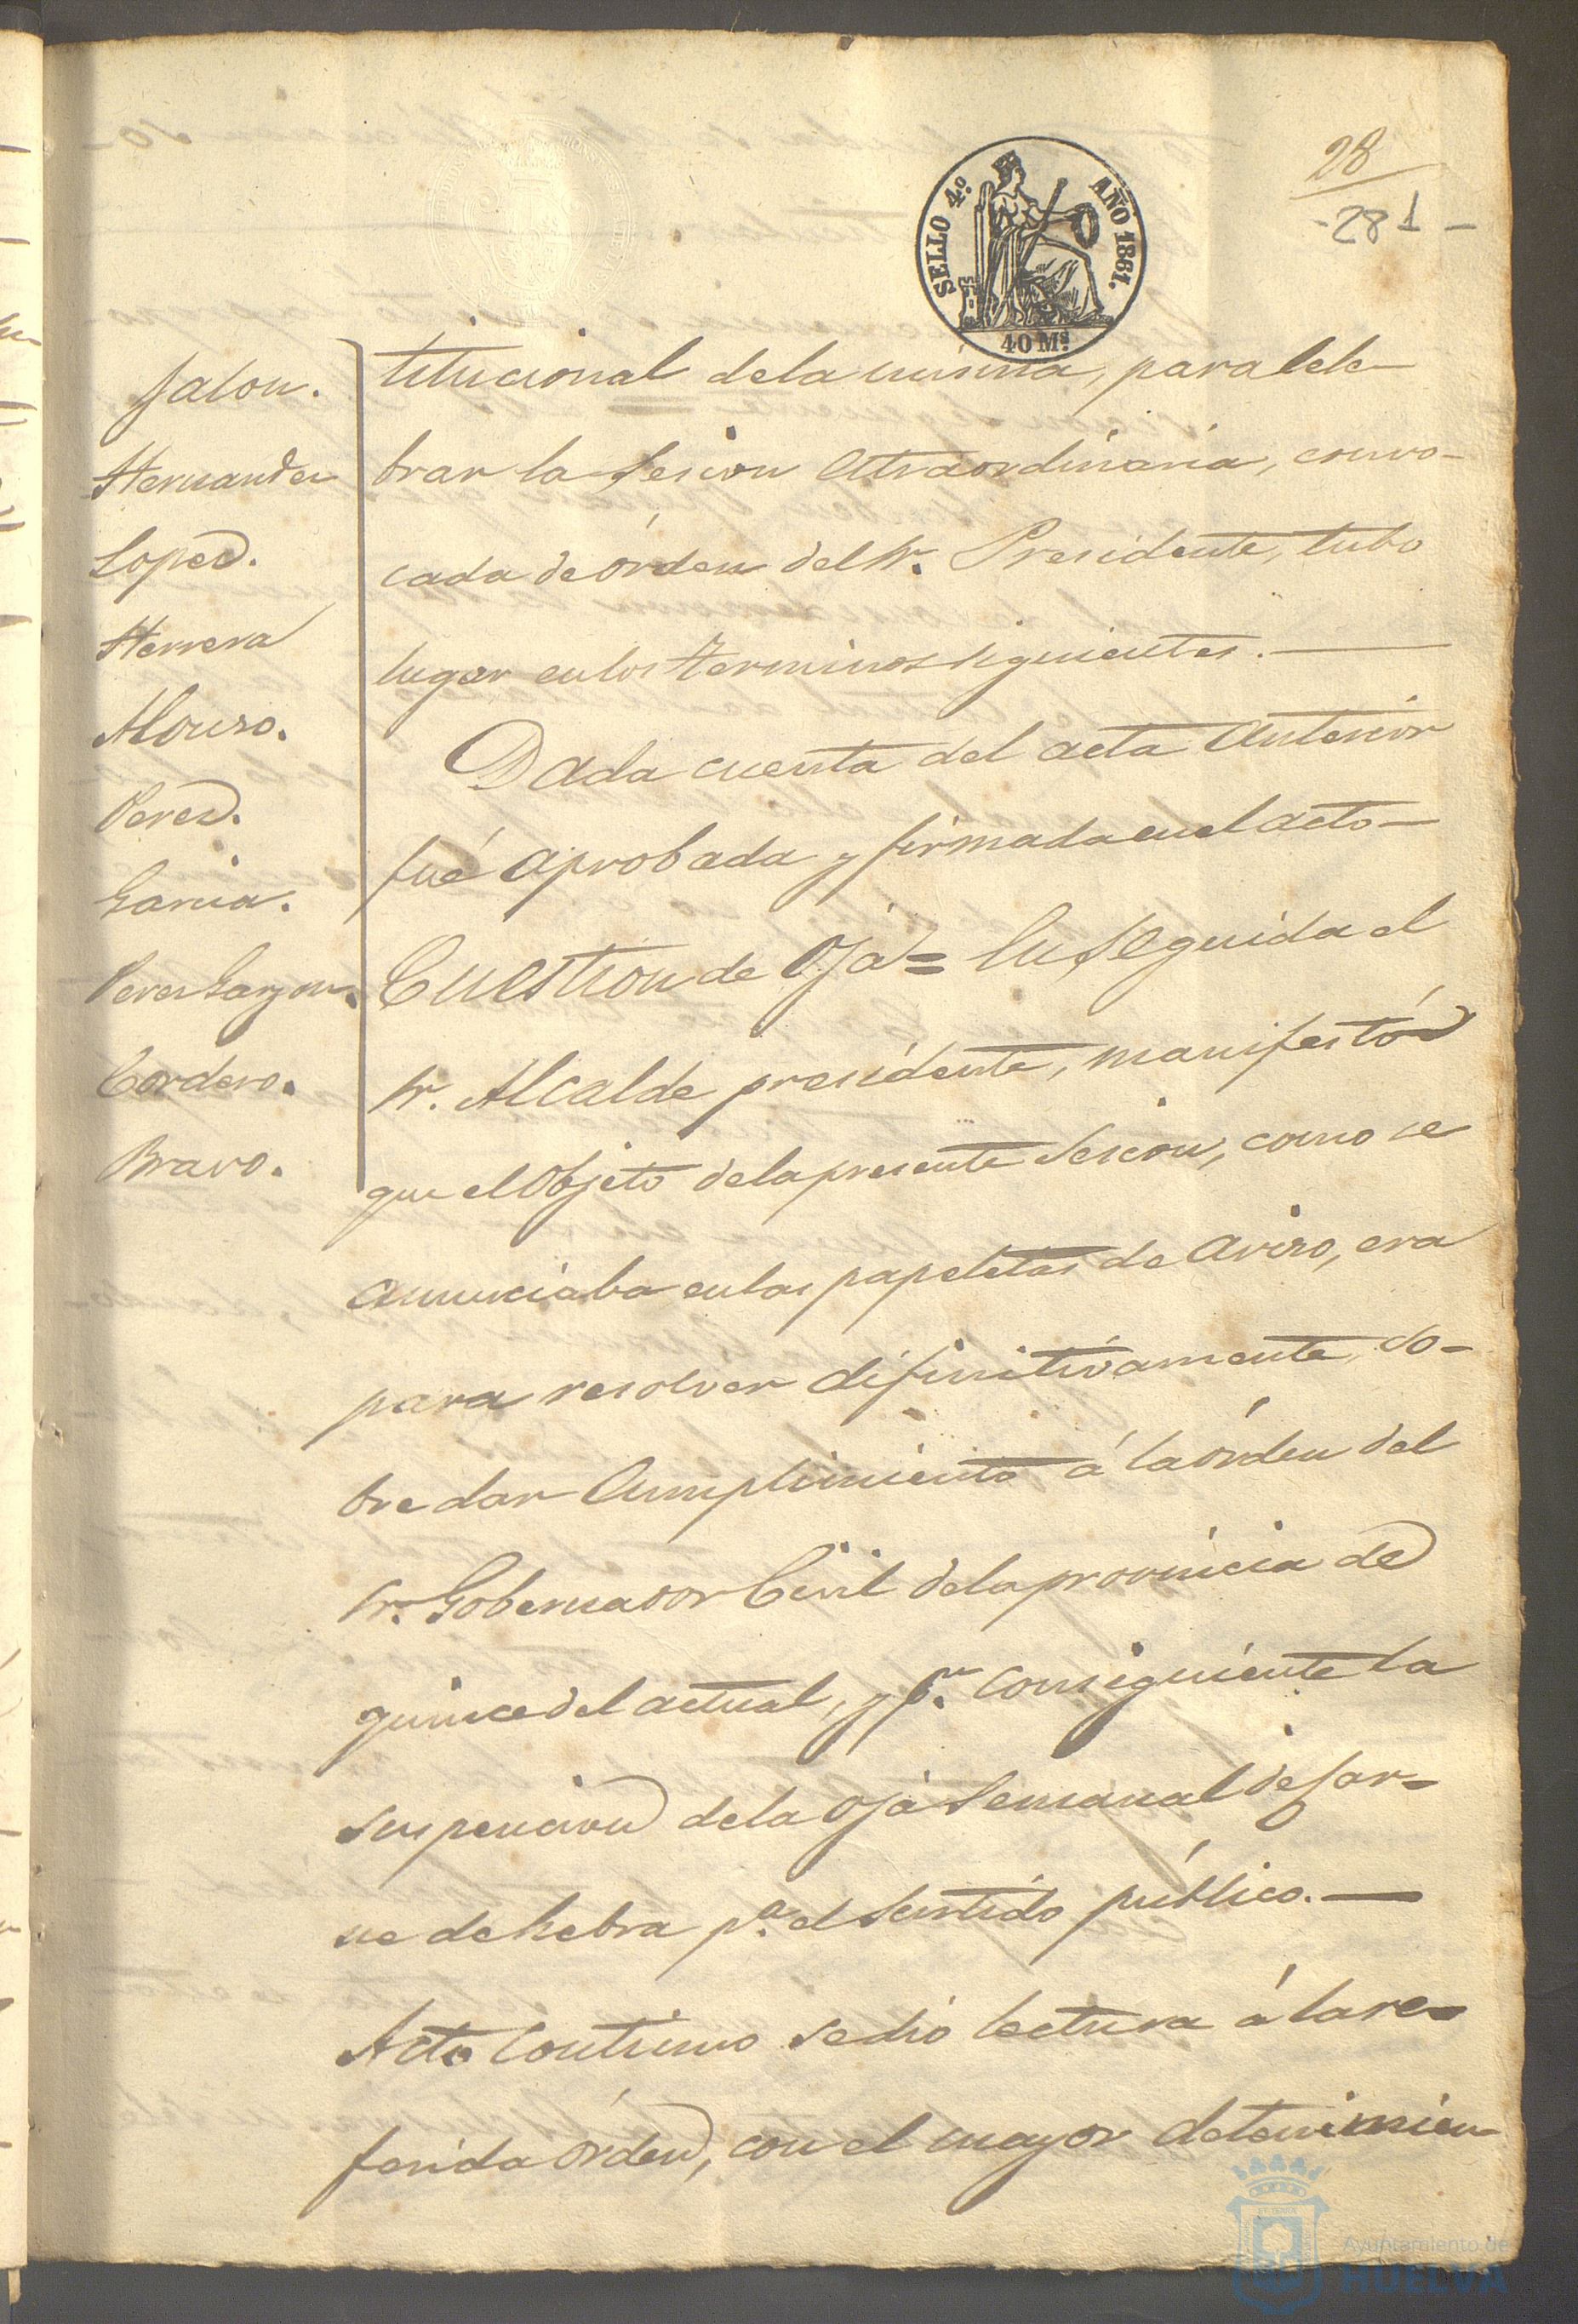 28
-281-
SELLO 4.º AÑO 1861.
40 Ms.
Jalon.
Hernandez
Lopez.
Herrera
Alonso.
Perez.
Garcia.
Perez Garzon.
Cordero.
Bravo.
titucional de la misma, para cele-
brar la sesion estraordinaria, convo-
cada de órden del Sr. Presidente, tubo
lugar en los terminos siguientes.
Dada cuenta del acta anterior
fué aprobada y firmada en el acto-
Cuestion de Oja= En seguida el
Sr. Alcalde presidente, manifestó
que el objeto de la presente sesion, como se
anunciaba en las papeletas de aviso, era
para resolver difinitivamente so-
bre dar cumplimiento á la órden del
Sr. Gobernador Civil de la provincia de
quince del actual, y pr. consiguiente la
suspencion de la oja semanal de car-
ne de hebra pa. el surtido público.
Acto continuo se dió lectura á la re-
ferida órden, con el mayor detenimien-
Ayuntamiento de
HUELVA